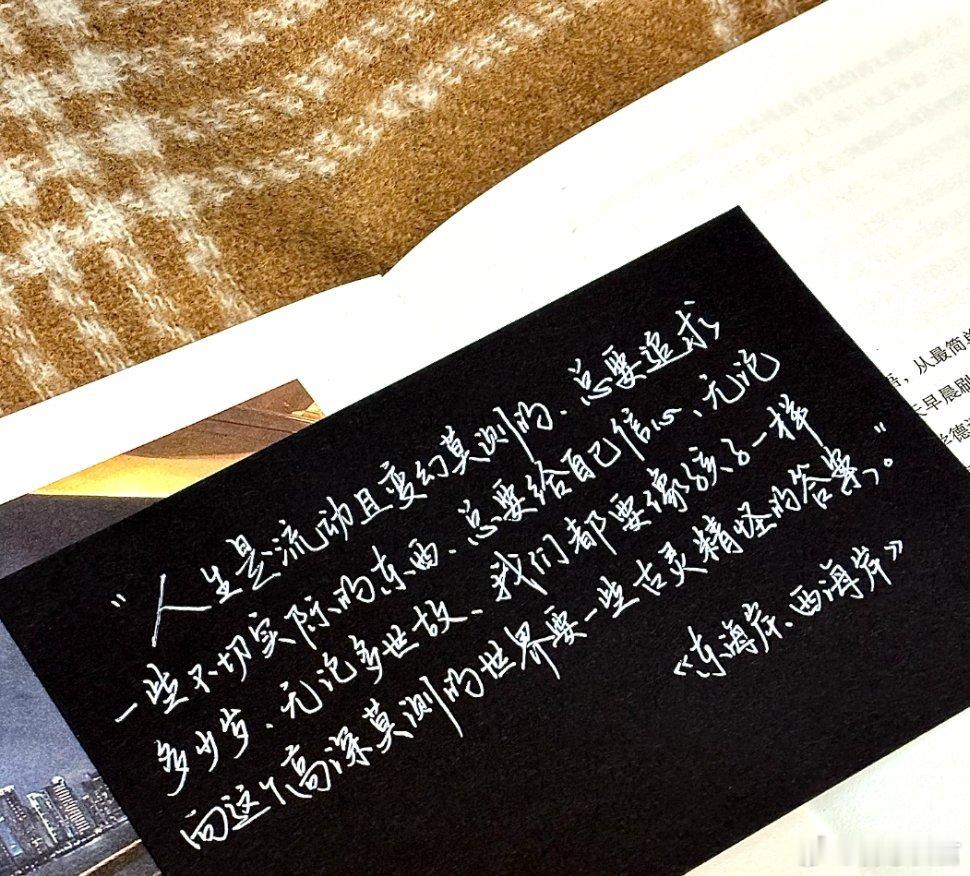 “人生是流动且变幻莫测的、总要追求
一些不切实际的东西、总要给自己信心、无论
多少岁、无论多世故、我们都要像孩子一样
向这个高深莫测的世界要一些古灵精怪的答案。”
《东海岸、西海岸》
语，从最简单
天早晨刷
学德语